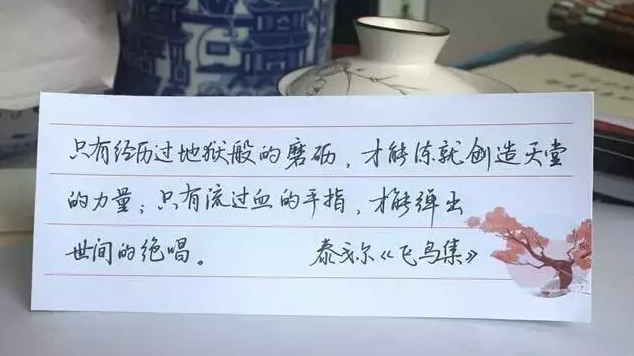 只有经历过地狱般的磨砺，才能练就创造天堂
的力量；只有流过血的手指，才能弹出
世间的绝唱。 泰戈尔《飞鸟集》